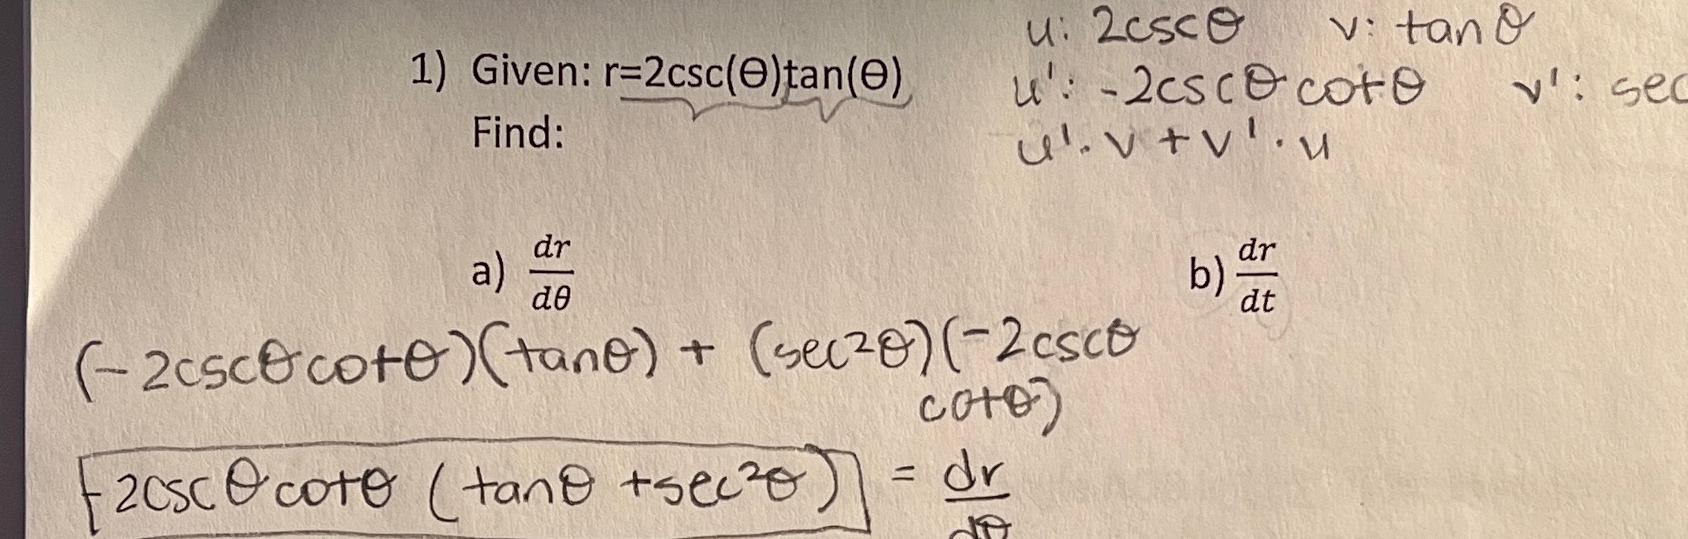 u: 2cscθ v: tanθ
1) Given: r=2csc(Θ)tan(Θ)
u': -2cscθcotθ v': sec
Find:
u'·v+v'·u
a) dr/dθ b) dr/dt
(-2cscθcotθ)(tanθ) + (sec²θ)(-2cscθ
cotθ)
-2cscθcotθ (tanθ +sec²θ) = dr/dθ